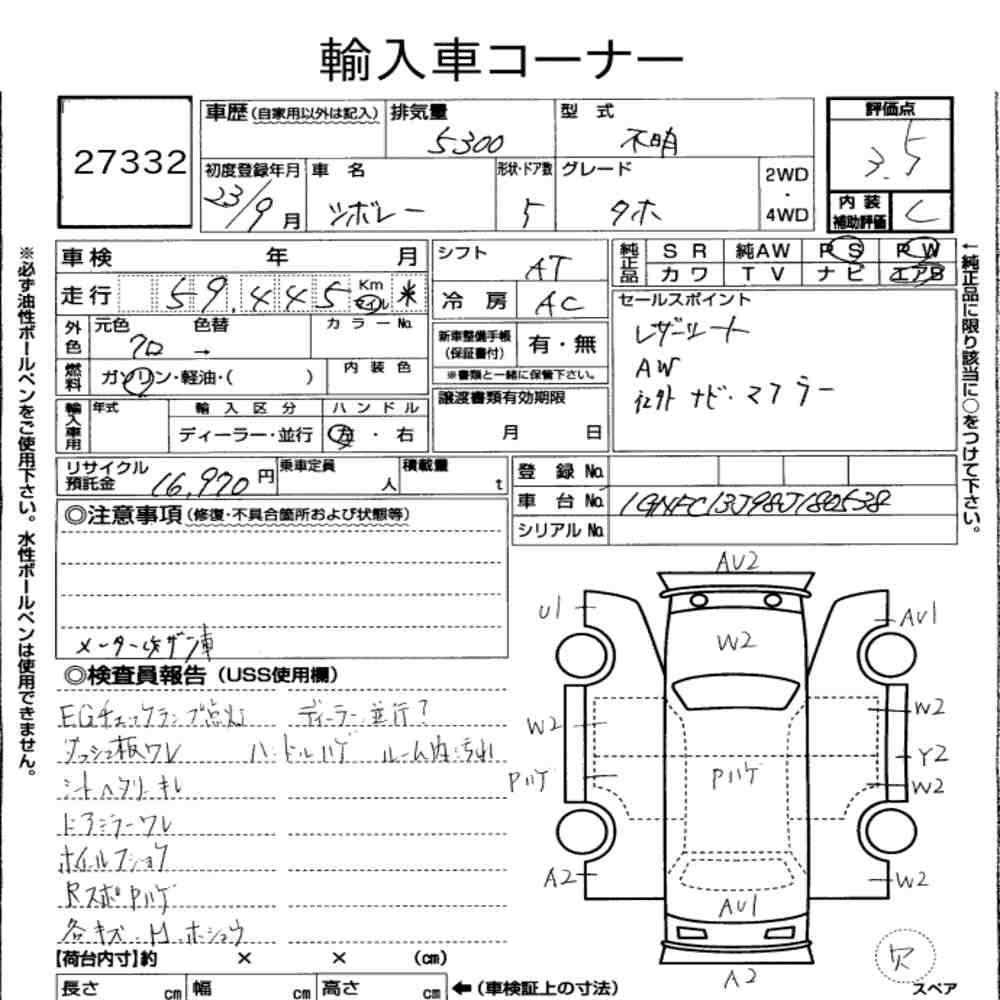 輸入車コーナー
27332
車歴(自家用以外は記入) 排気量 5300 型式 不明
初度登録年月 23/9月 車名 シボレー 形状・ドア数 5 グレード タホ 2WD・4WD
評価点 3.5
内装補助評価 C
車検 年 月
走行 59,445 Km マイル *
外色 元色 クロ 色替 → カラーNo.
燃料 ガソリン・軽油・( ) 内装色
輸入車用 年式 輸入区分 ディーラー・並行 ハンドル 左・右
シフト AT
冷房 AC
新車整備手帳(保証書付) 有・無
※書類と一緒に保管下さい。
譲渡書類有効期限 月 日
純正品 SR 純AW PS PW
カワ TV ナビ エアB
セールスポイント
レザーシート
AW
社外ナビ・マフラー
リサイクル預託金 16,970円 乗車定員 人 積載量 t
登録No.
車台No. 1GNFC13J98J180538
シリアルNo.
◎注意事項(修復・不具合箇所および状態等)
メーター改ザン車
◎検査員報告(USS使用欄)
EGチェックランプ点灯 ディーラー並行?
ダッシュ板ワレ ハンドルハゲ ルーム内汚れ
シートヘタリ・キレ
ドアミラーワレ
ホイルフショク
RスポPハゲ
各キズ・H・ホシュウ
【荷台内寸】約 × × (cm)
長さ cm 幅 cm 高さ cm ←(車検証上の寸法)
AU2
U1
AU1
W2
W2
W2
Y2
Pハゲ
Pハゲ
W2
A2
W2
AU1
A2
欠
スペア
※必ず油性ボールペンをご使用下さい。水性ボールペンは使用できません。
←純正品に限り該当に○をつけて下さい。